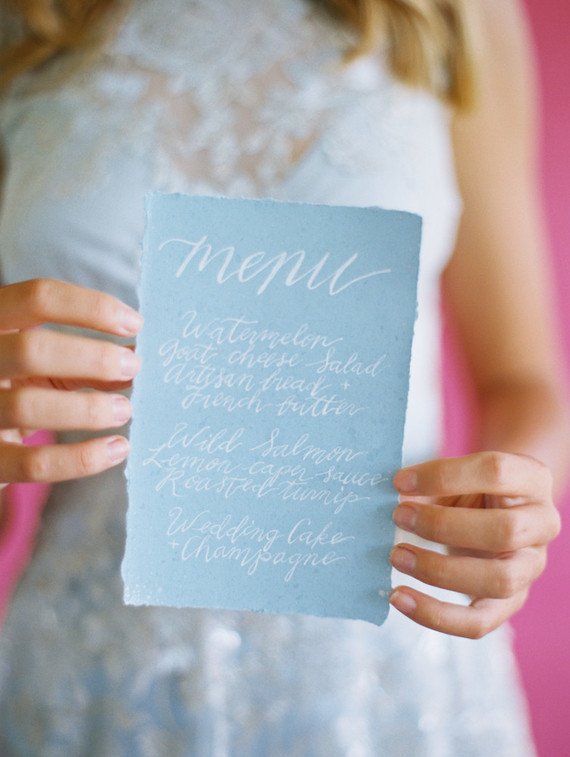 menu
Watermelon
goat cheese Salad
Artisan bread +
french butter
Wild Salmon
Lemon caper sauce
Roasted turnip
Wedding Cake
+ Champagne